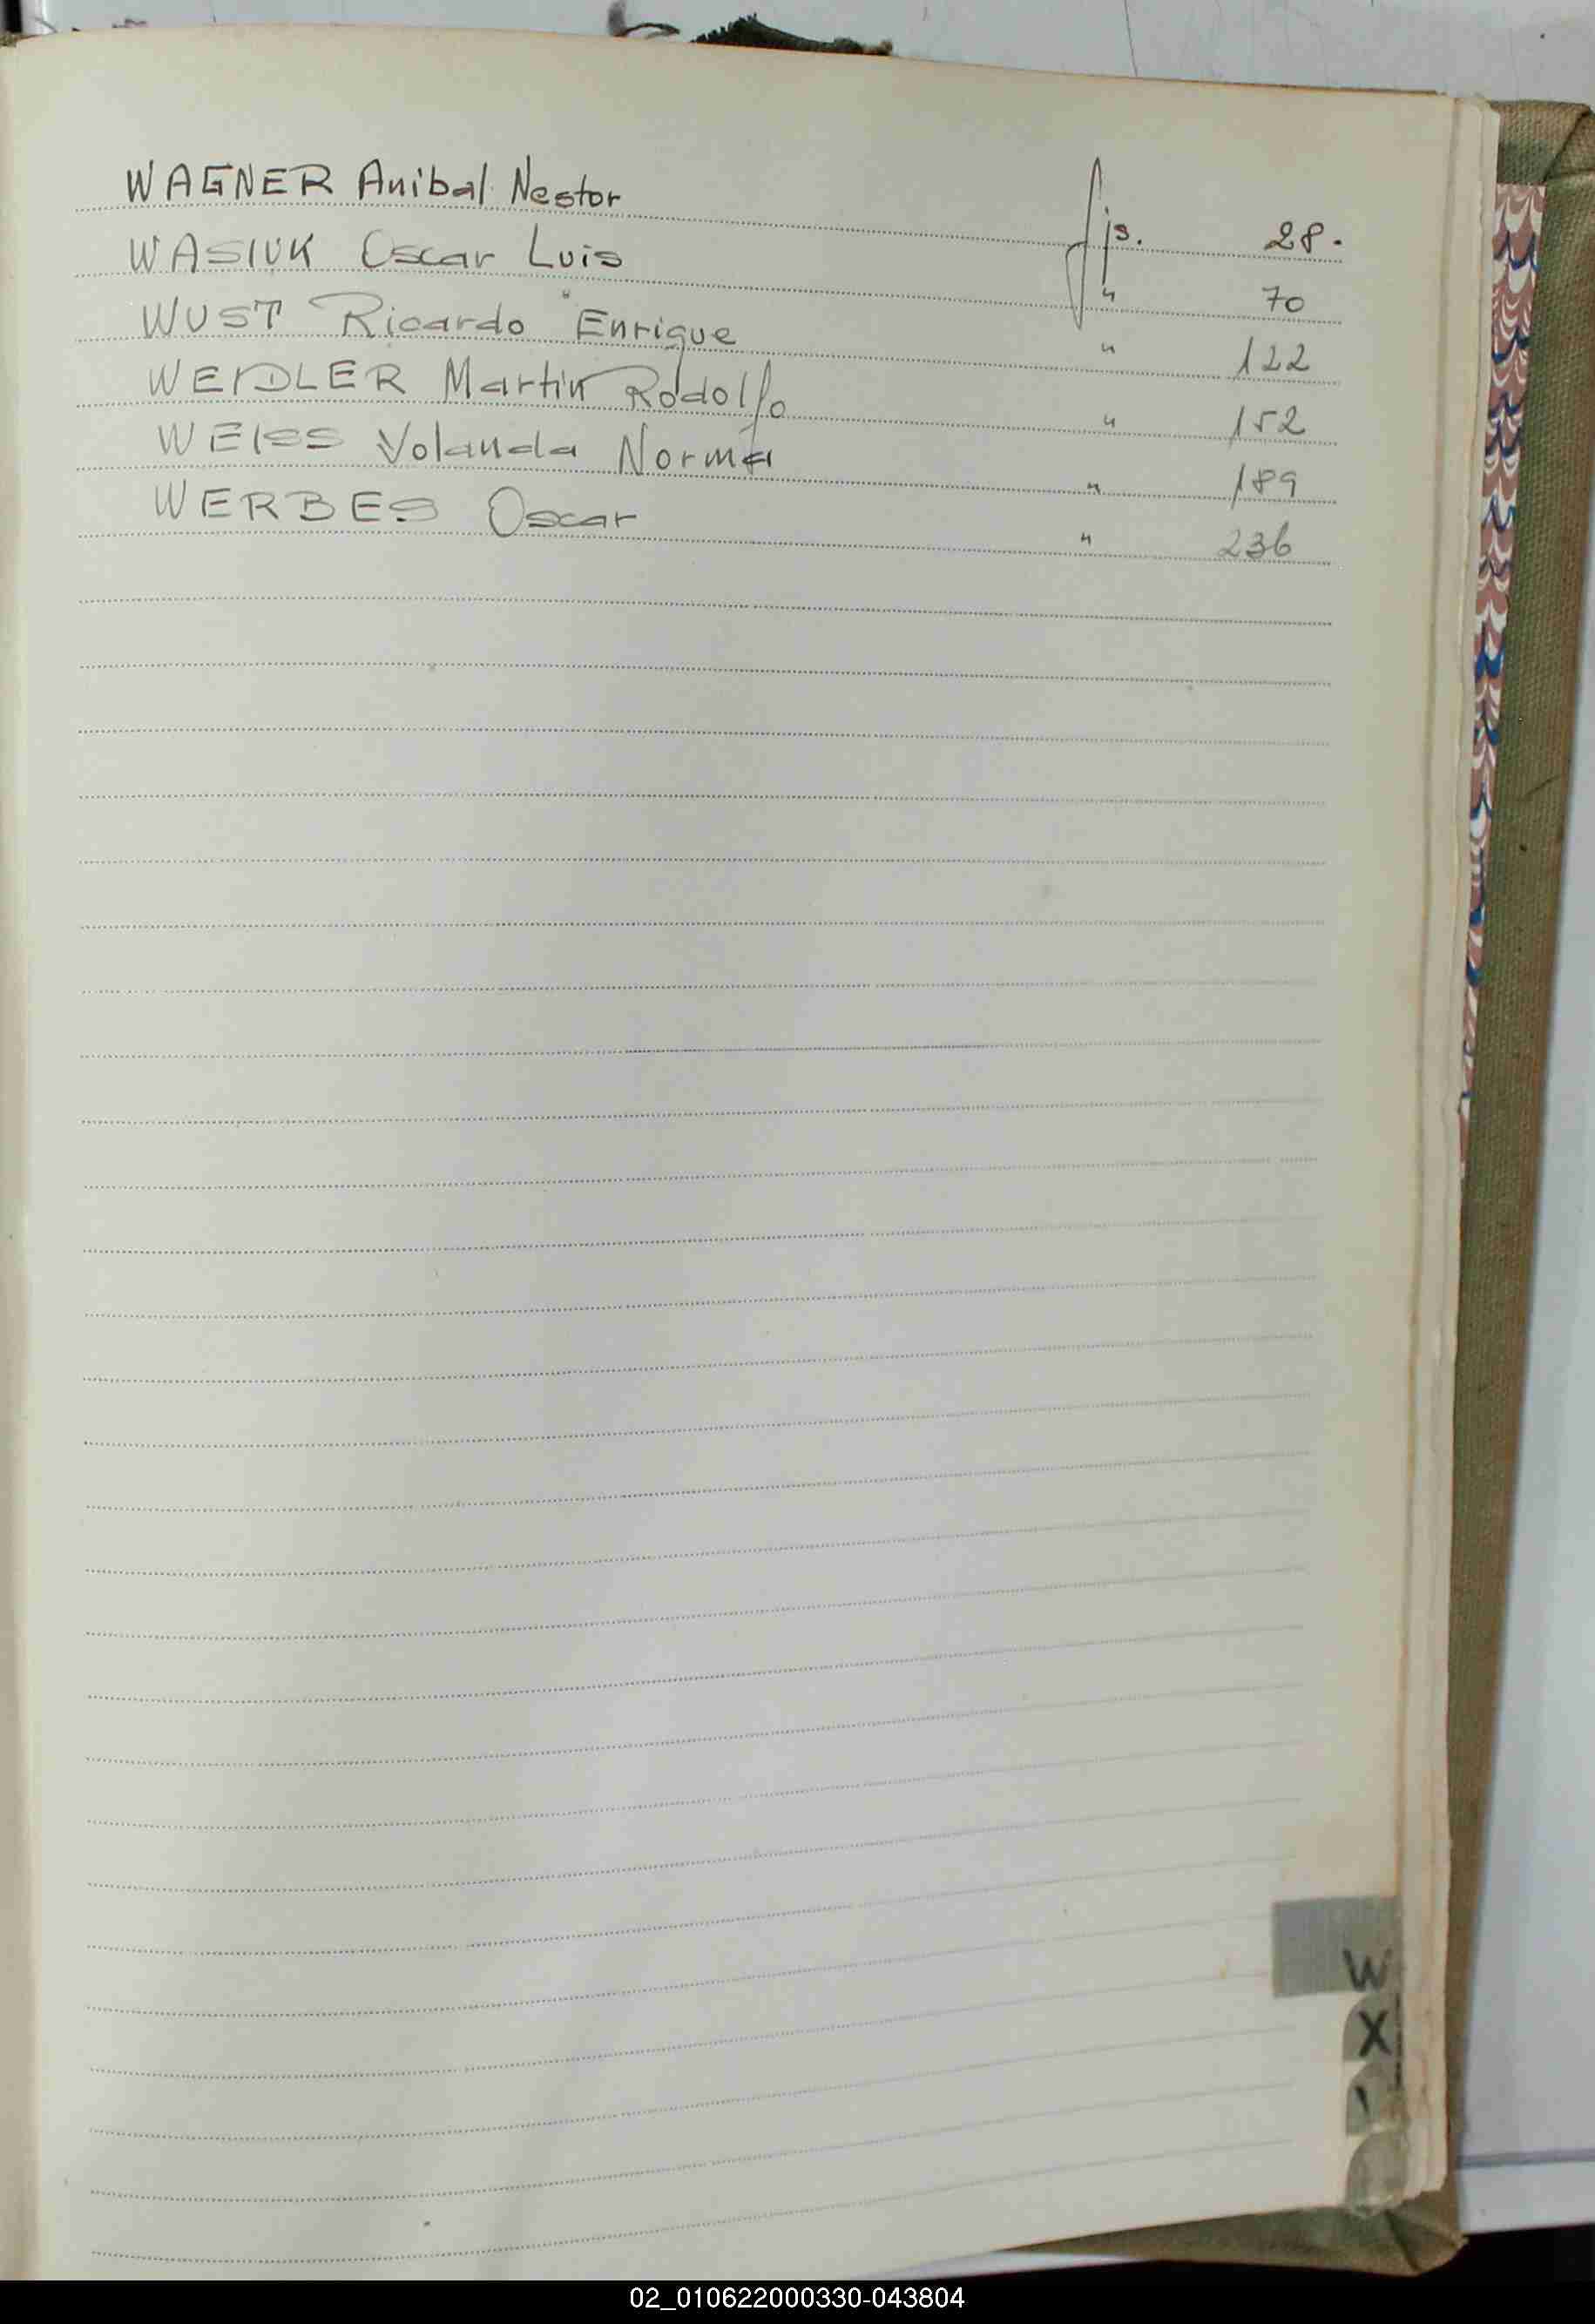 WAGNER Anibal Nestor fjs. 28.
WASIUK Oscar Luis " 70
WUST Ricardo Enrique " 122
WEIDLER Martin Rodolfo " 152
WEISS Yolanda Norma " 189
WERBES Oscar " 236
W
X
02_010622000330-043804